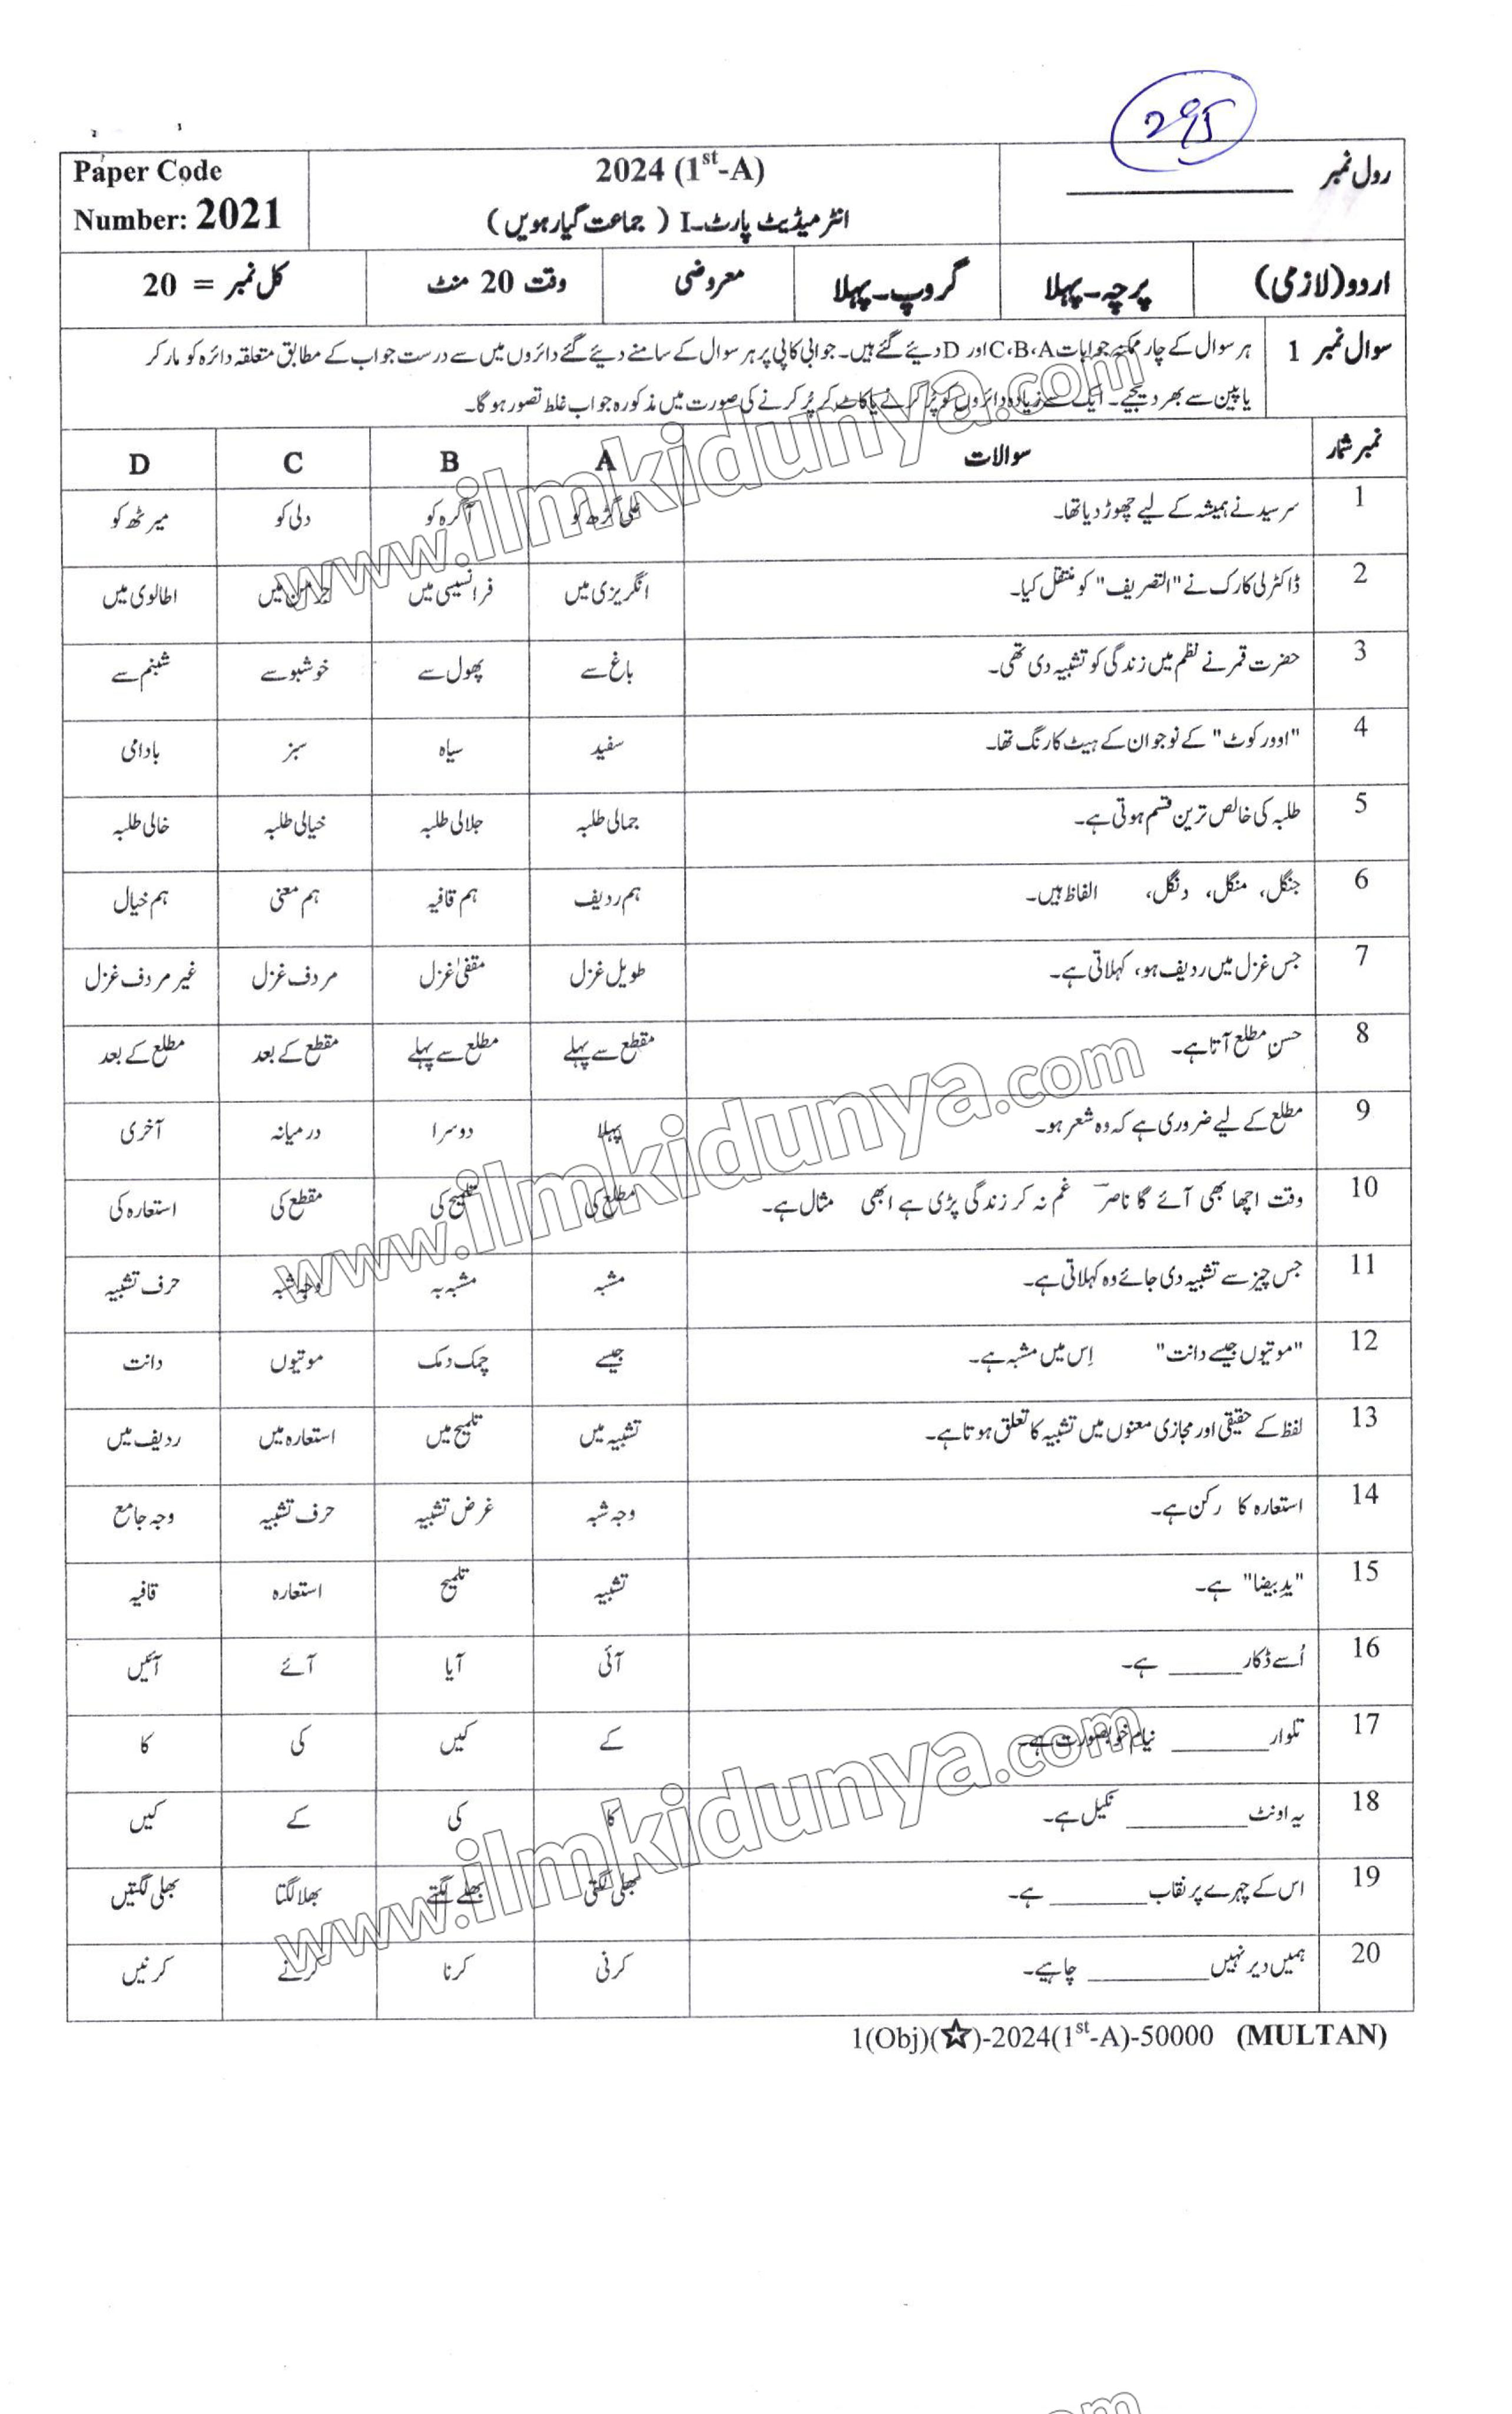 295
Paper Code
Number: 2021
2024 (1st-A)
انٹرمیڈیٹ پارٹ-I ( جماعت گیارہویں )
رول نمبر ____________
اردو(لازمی) پرچہ۔پہلا گروپ۔پہلا معروضی وقت 20 منٹ کل نمبر = 20
سوال نمبر 1 ہر سوال کے چار ممکنہ جوابات C،B،A اور D دیئے گئے ہیں۔ جوابی کاپی پر ہر سوال کے سامنے دیئے گئے دائروں میں سے درست جواب کے مطابق متعلقہ دائرہ کو مارکر
یا پین سے بھر دیجیے۔ ایک سے زیادہ دائروں کو پُر کرنے یا کاٹ کر پُر کرنے کی صورت میں مذکورہ جواب غلط تصور ہو گا۔
نمبر شمار سوالات A B C D
1 سرسید نے ہمیشہ کے لیے چھوڑ دیا تھا۔ علی گڑھ کو آگرہ کو دلی کو میرٹھ کو
2 ڈاکٹر لی کارک نے "التصریف" کو منتقل کیا۔ انگریزی میں فرانسیسی میں جرمن میں اطالوی میں
3 حضرت قمر نے نظم میں زندگی کو تشبیہ دی تھی۔ باغ سے پھول سے خوشبو سے شبنم سے
4 "اوور کوٹ" کے نوجوان کے ہیٹ کا رنگ تھا۔ سفید سیاہ سبز بادامی
5 طلبہ کی خالص ترین قسم ہوتی ہے۔ جمالی طلبہ جلالی طلبہ خیالی طلبہ خالی طلبہ
6 جنگل، منگل، دنگل، الفاظ ہیں۔ ہم ردیف ہم قافیہ ہم معنی ہم خیال
7 جس غزل میں ردیف ہو، کہلاتی ہے۔ طویل غزل مقفیٰ غزل مردف غزل غیر مردف غزل
8 حسنِ مطلع آتا ہے۔ مقطع سے پہلے مطلع سے پہلے مقطع کے بعد مطلع کے بعد
9 مطلع کے لیے ضروری ہے کہ وہ شعر ہو۔ پہلا دوسرا درمیانہ آخری
10 وقت اچھا بھی آئے گا ناصرؔ غم نہ کر زندگی پڑی ہے ابھی مثال ہے۔ مطلع کی تلمیح کی مقطع کی استعارہ کی
11 جس چیز سے تشبیہ دی جائے وہ کہلاتی ہے۔ مشبہ مشبہ بہ وجہ شبہ حرف تشبیہ
12 "موتیوں جیسے دانت" اِس میں مشبہ ہے۔ جیسے چمک دمک موتیوں دانت
13 لفظ کے حقیقی اور مجازی معنوں میں تشبیہ کا تعلق ہوتا ہے۔ تشبیہ میں تلمیح میں استعارہ میں ردیف میں
14 استعارہ کا رکن ہے۔ وجہ شبہ غرض تشبیہ حرف تشبیہ وجہ جامع
15 "یدِ بیضا" ہے۔ تشبیہ تلمیح استعارہ قافیہ
16 اُسے ڈکار ______ ہے۔ آئی آیا آئے آئیں
17 تلوار ________ نیام خوبصورت ہے۔ کے کیں کی کا
18 یہ اونٹ __________ نکیل ہے۔ کا کی کے کیں
19 اس کے چہرے پر نقاب ________ ہے۔ بھلی لگتی بھلے لگتے بھلا لگتا بھلی لگتیں
20 ہمیں دیر نہیں __________ چاہیے۔ کرنی کرنا کرنے کرنیں
1(Obj)(☆)-2024(1st-A)-50000 (MULTAN)
www.ilmkidunya.com
www.ilmkidunya.com
www.ilmkidunya.com